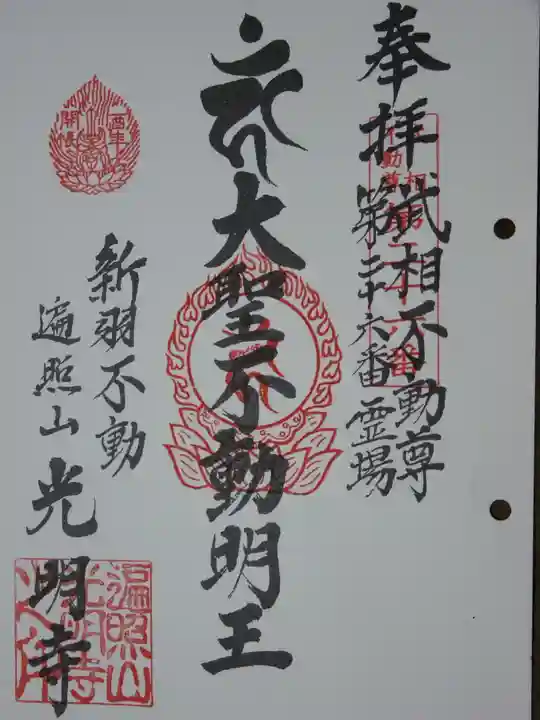 奉拝
武相不動尊
第二十六番霊場
大聖不動明王
新羽不動
遍照山 光明寺
酉年
開帳
遍照山
光明寺